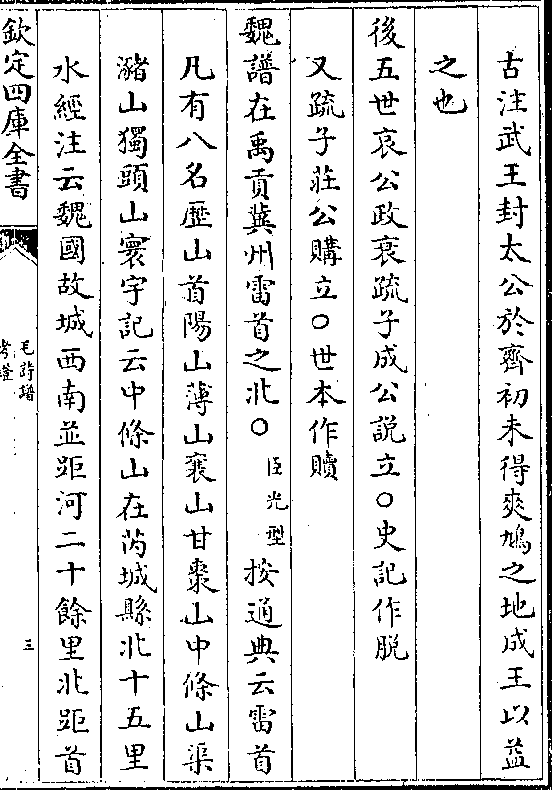 古注武王封太公於齊初未得爽鳩之地成王以益
之也
後五世哀公政衰疏子成公説立○史記作脱
又疏子莊公購立○世本作贖
魏譜在禹貢冀州雷首之北○臣光型按通典云雷首
凡有八名歴山首陽山薄山襄山甘棗山中條山渠
瀦山獨頭山寰宇記云中條山在芮城縣北十五里
水經注云魏國故城西南並距河二十餘里北距首
欽定四庫全書
毛詩譜
考證
三